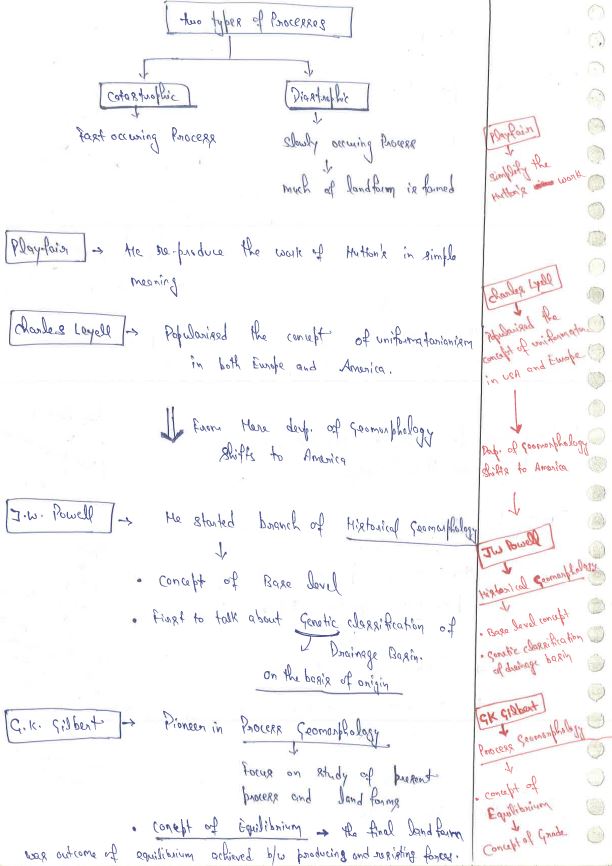 two types of Processes
Catastrophic
Diastrophic
Fast occuring Process
slowly occuring Process
much of landform is formed
Playfair → He re-produce the work of Hutton's in simple
meaning
Charles Leyell → Popularised the concept of uniformatarianism
in both Europe and America.
From Here devp. of Geomorphology
shifts to America
J.W. Powell → He started branch of Historical Geomorphology
• Concept of Base level
• First to talk about Genetic classification of
Drainage Basin.
on the basis of origin
G.K. Gilbert → Pioneer in Process Geomorphology
Focus on study of present
process and land forms
• Concept of Equilibrium → the final landform
was outcome of equilibrium achieved b/w producing and resisting forces.
Playfair
simplify the
Hutton's work
Charles Lyell
Popularised the
concept of uniformatar
in USA and Europe
Devp. of Geomorphology
shifts to America
JW Powell
Historical Geomorphology
• Base level concept
• Genetic classification
of drainage basin
GK Gilbert
Process Geomorphology
• concept of
Equilibrium
Concept of Grade